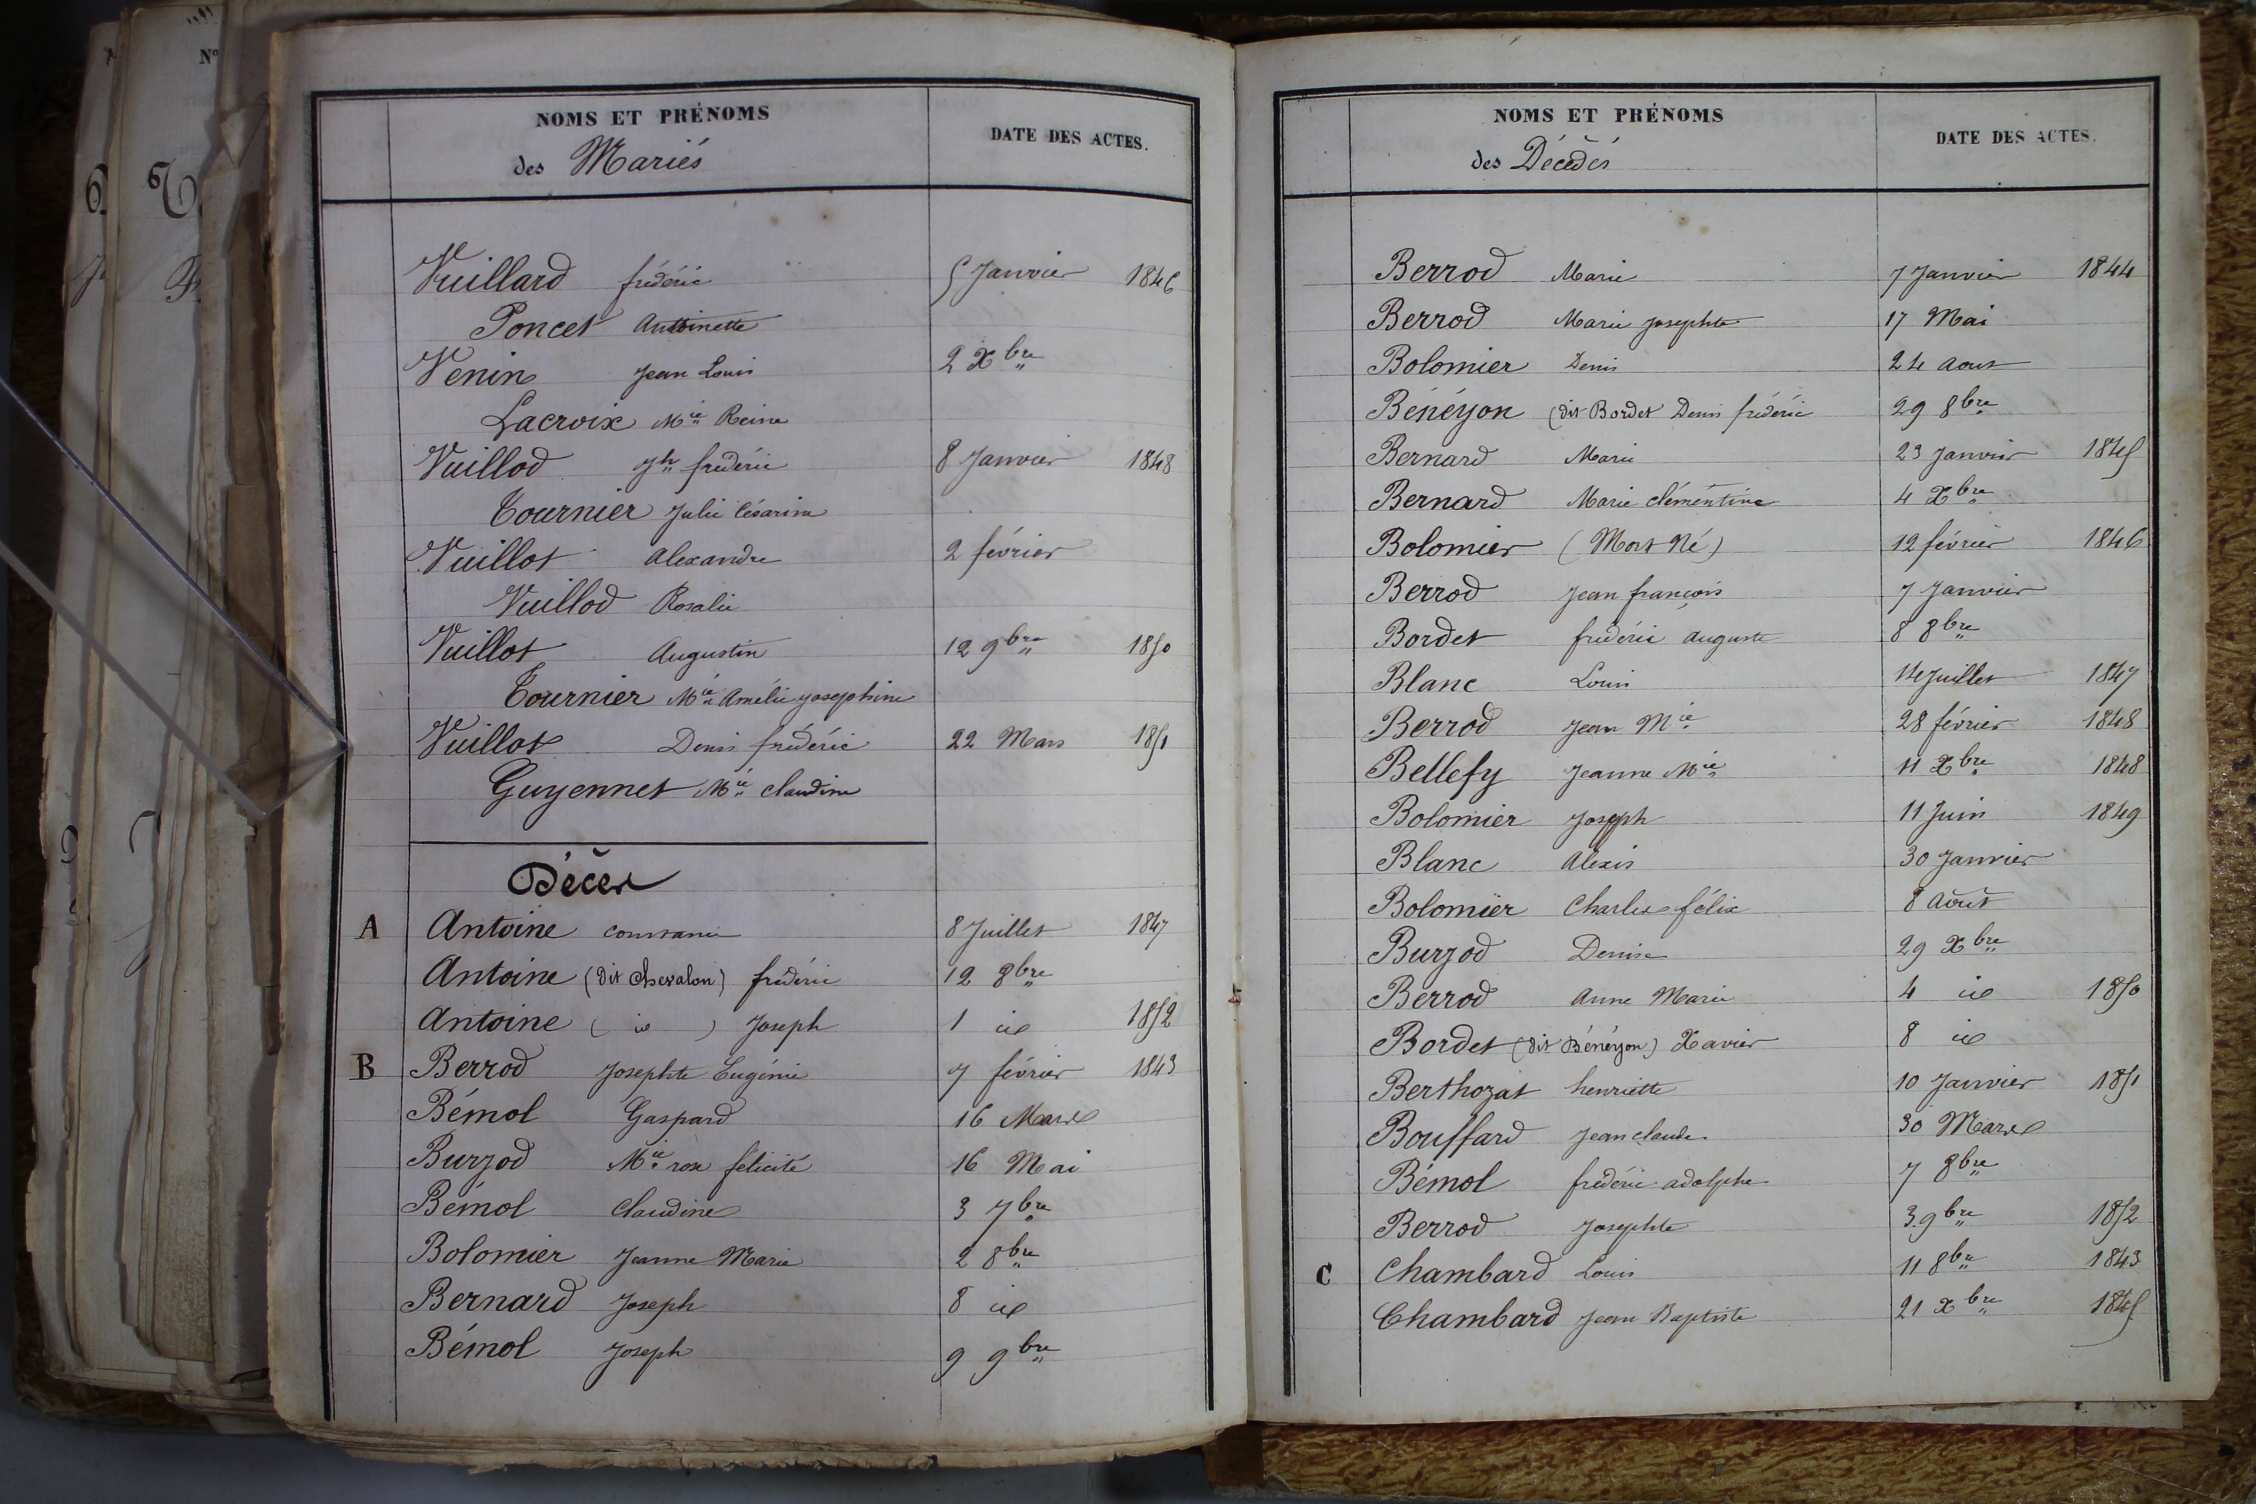 NOMS ET PRÉNOMS DATE DES ACTES.
des Mariés
Vuillard frédéric 5 Janvier 1846
Poncet Antoinette
Venin Jean Louis 2 Xbre
Lacroix Mie Reine
Vuillod Jh frédéric 8 Janvier 1848
Tournier Julie Césarine
Vuillot Alexandre 2 février
Vuillod Rosalie
Vuillot Augustin 12 9bre 1850
Tournier Mie Amélie Josephine
Vuillot Denis frédéric 22 Mars 1851
Guyennet Mie Claudine
Décès
A Antoine Constance 8 Juillet 1847
Antoine (dit Chevalon) frédéric 12 8bre
Antoine ( id ) Joseph 1 id 1852
B Berrod Josephte Eugénie 7 février 1843
Bémol Gaspard 16 Mars
Burzod Mie rose félicité 16 Mai
Bémol Claudine 3 7bre
Bolomier Jeanne Marie 2 8bre
Bernard Joseph 8 id
Bémol Joseph 9 9bre
NOMS ET PRÉNOMS DATE DES ACTES.
des Décédés
Berrod Marie 7 Janvier 1844
Berrod Marie Josephte 17 Mai
Bolomier Denis 24 Aout
Bénéyon (dit Bordet Denis frédéric 29 8bre
Bernard Marie 23 Janvier 1845
Bernard Marie clémentine 4 Xbre
Bolomier (Mort Né) 12 février 1846
Berrod Jean françois 7 Janvier
Bordet frédéric auguste 8 8bre
Blanc Louis 14 Juillet 1847
Berrod Jean Mie 28 février 1848
Bellefy Jeanne Mie 11 Xbre 1848
Bolomier Joseph 11 Juin 1849
Blanc Alexis 30 Janvier
Bolomier Charles félix 8 Août
Burzod Denise 29 Xbre
Berrod Anne Marie 4 id 1850
Bordet (dit Bénéyon) Xavier 8 id
Berthozat henriette 10 Janvier 1851
Bouffard Jean claude 30 Mars
Bémol frédéric adolphe 7 8bre
Berrod Josephte 3 9bre 1852
C Chambard Louis 11 8bre 1843
Chambard Jean Baptiste 21 Xbre 1845